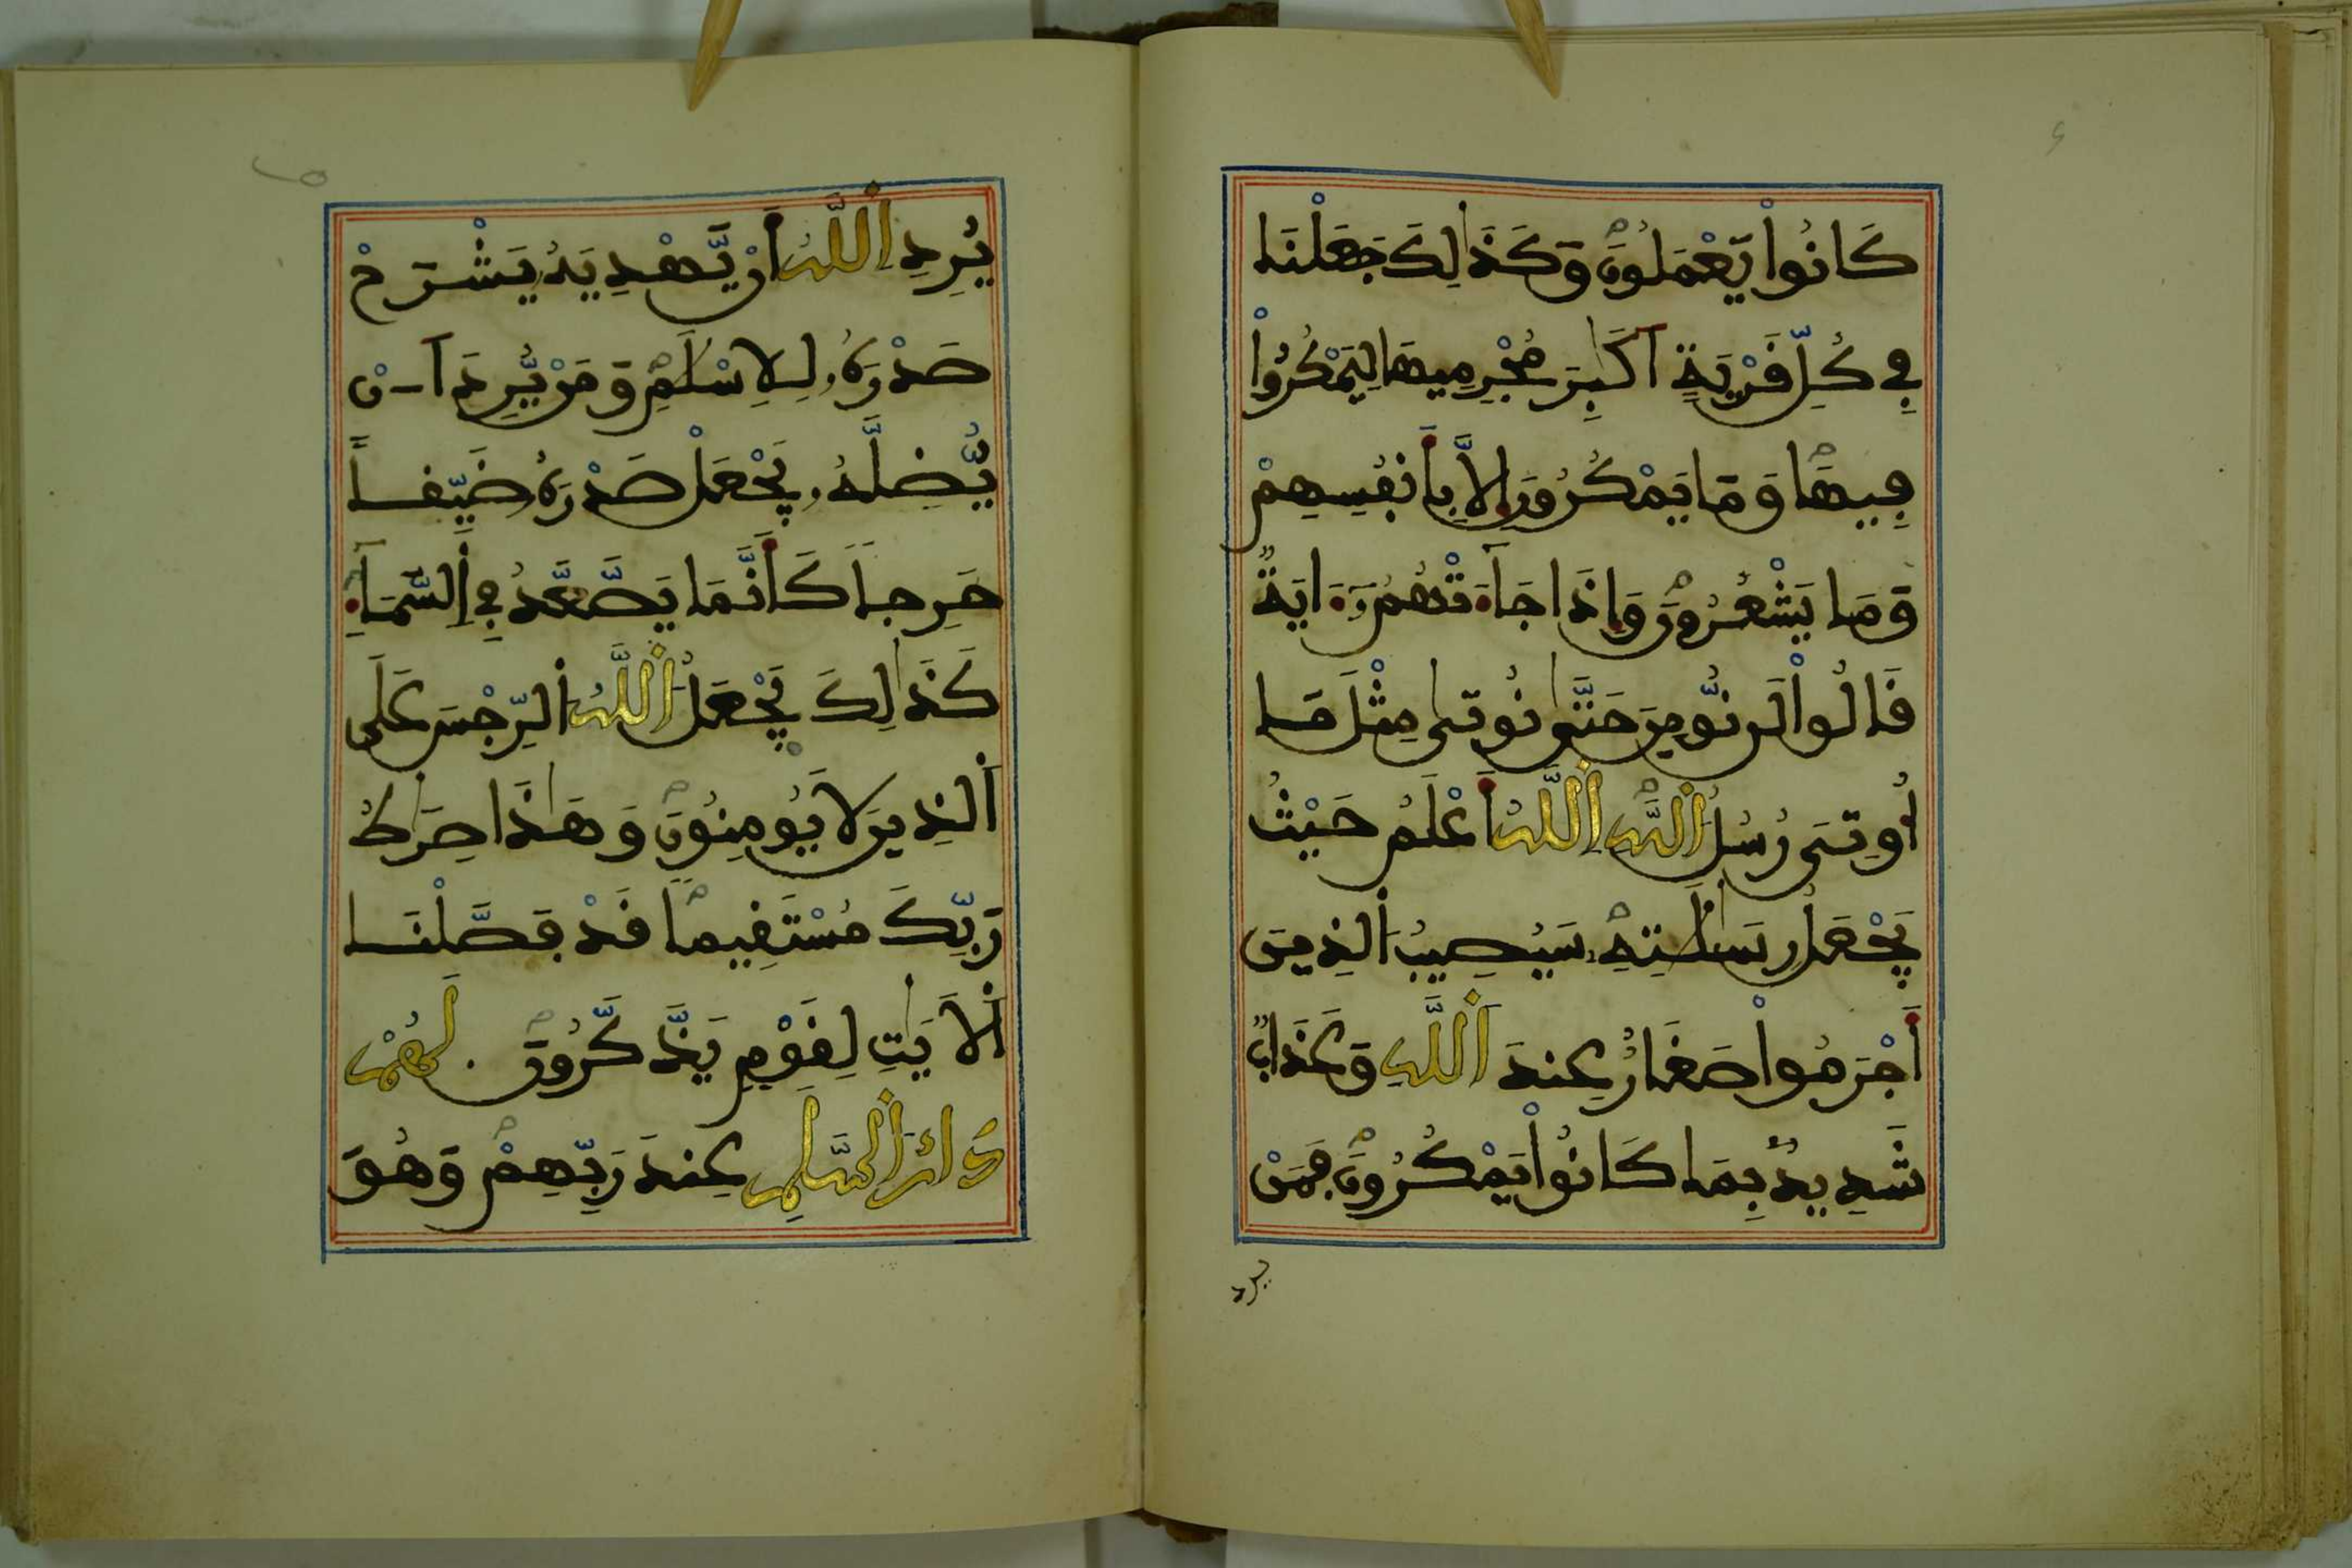 كَانُواْ يَعْمَلُونَ وَكَذَٰلِكَ جَعَلْنَا
فِي كُلِّ قَرْيَةٍ أَكَٰبِرَ مُجْرِمِيهَا لِيَمْكُرُواْ
فِيهَا وَمَا يَمْكُرُونَ إِلَّا بِأَنفُسِهِمْ
وَمَا يَشْعُرُونَ وَإِذَا جَآءَتْهُمُۥٓ ءَايَةٌ
قَالُواْ لَن نُّومِنَ حَتَّىٰ نُوتىٰ مِثْلَ مَا
أُوتِىَ رُسُلُ اُللَّهِ اِللَّهُ أَعْلَمُ حَيْثُ
يَجْعَلُ رِسَٰلَٰتِهِۦ سَيُصِيبُ اُلذِينَ
أَجْرَمُواْ صَغَارٌ عِندَ اَللَّهِ وَعَذَابٌ
شَدِيدٌ بِمَا كَانُواْ يَمْكُرُونَ فَمَنْ
يرد
يُرِدِ اِللَّهُ أَنْ يَّهْدِيَهُۥ يَشْرَحْ
صَدْرَهُۥ لِلِاسْلَٰمِ وَمَنْ يُّرِدَ اَنْ
يُّضِلَّهُۥ يَجْعَلْ صَدْرَهُۥ ضَيِّقاً
حَرِجاً كَأَنَّمَا يَصَّعَّدُ فِي اِلسَّمَآءِ
كَذَٰلِكَ يَجْعَلُ اُللَّهُ اُلرِّجْسَ عَلَى
اَلذِينَ لَا يُومِنُونَ وَهَٰذَا صِرَٰطُ
رَبِّكَ مُسْتَقِيماً قَدْ فَصَّلْنَا
اَلَايَٰتِ لِقَوْمٍ يَذَّكَّرُونَ لَهُمْ
دَارُ اُلسَّلَٰمِ عِندَ رَبِّهِمْ وَهُوَ